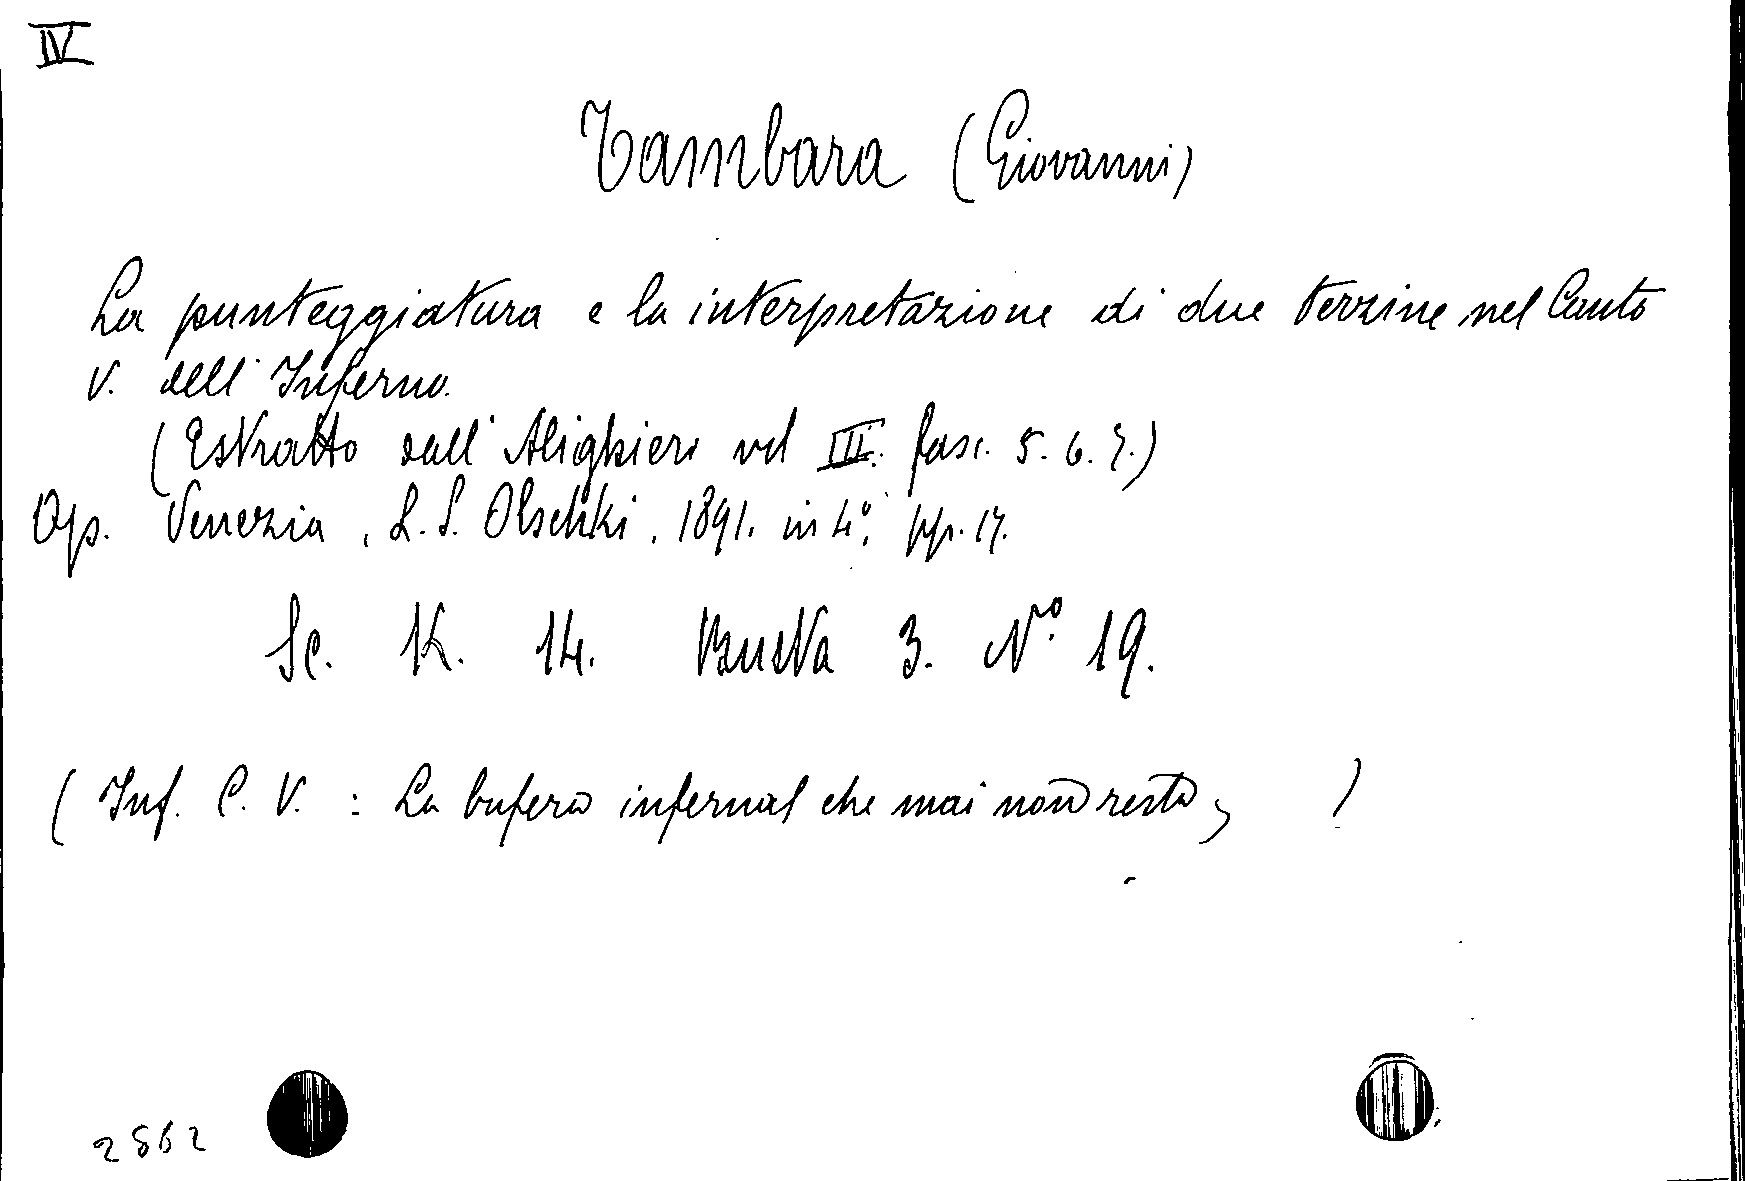 IV
Tambara (Giovanni)
La punteggiatura e la interpretazione di due terzine nel Canto
V. dell' Inferno.
(Estratto dall' Alighieri vol III. fasc. 5. 6. 7.)
Op. Venezia, L. S. Olschki, 1891. in 4°, pp. 17.
Sc. K. 14. Busta 3. N° 19.
(Inf. C. V. : La bufera infernal che mai non resta, )
2862